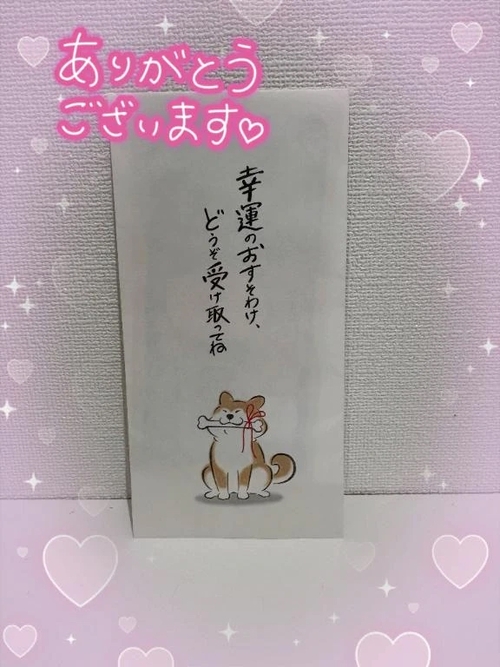 ありがとう
ございます♡
幸運のおすそわけ、
どうぞ受け取ってね